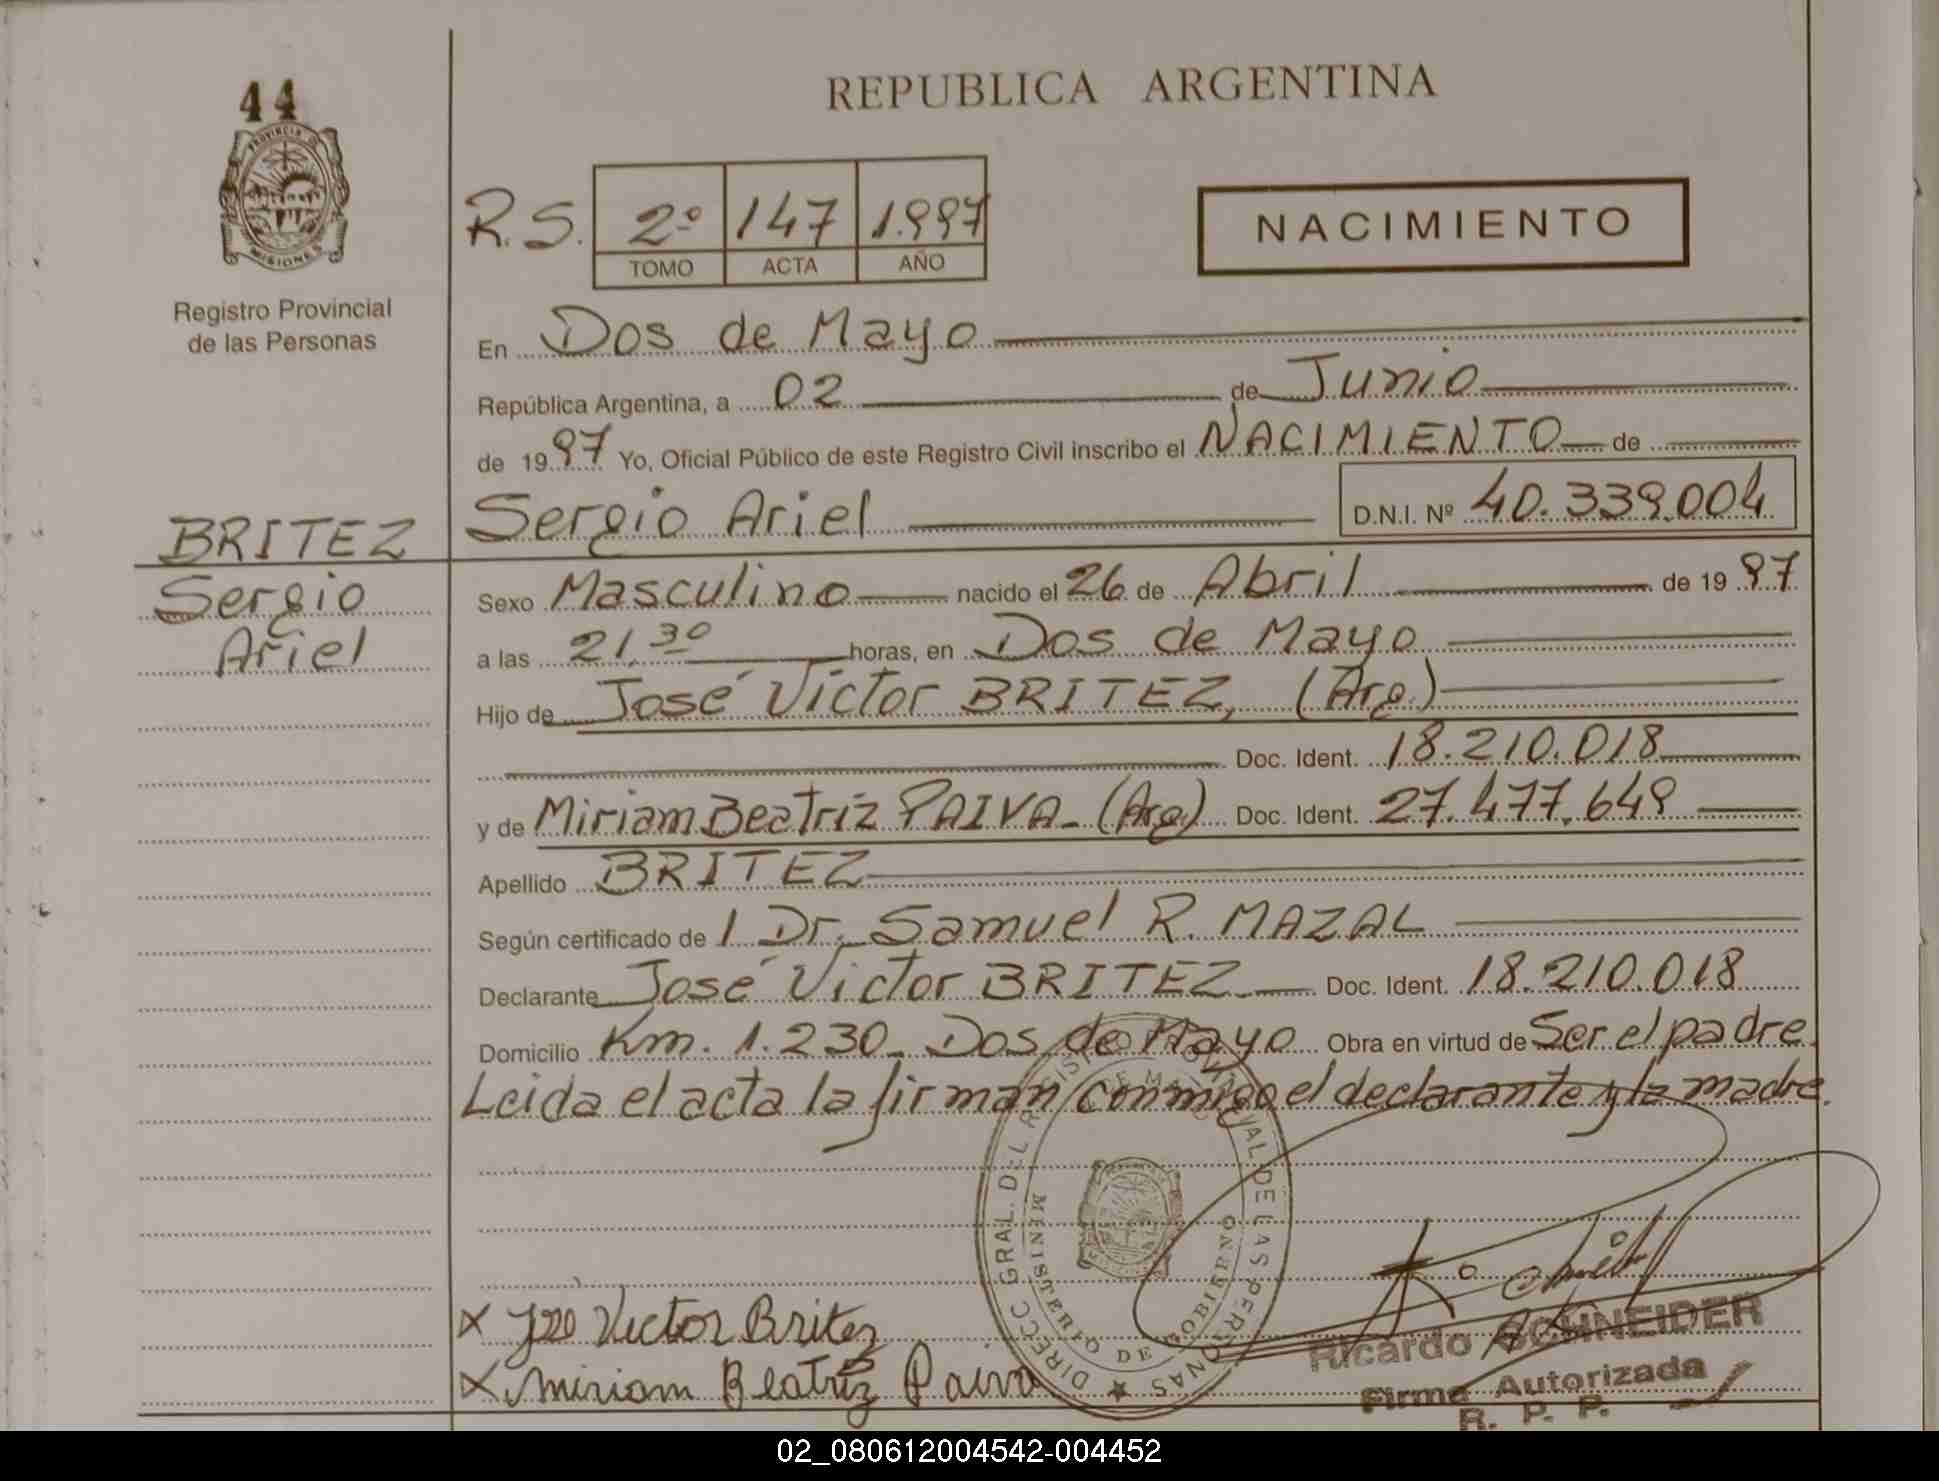 44
PROVINCIA DE
MISIONES
Registro Provincial
de las Personas
BRITEZ
Sergio
Ariel
REPUBLICA ARGENTINA
R.S. 2º 147 1.997
TOMO ACTA AÑO
NACIMIENTO
En Dos de Mayo
República Argentina, a 02 de Junio
de 1997 Yo, Oficial Público de este Registro Civil inscribo el NACIMIENTO de
Sergio Ariel D.N.I. Nº 40.339.004
Sexo Masculino nacido el 26 de Abril de 1997
a las 21,30 horas, en Dos de Mayo
Hijo de José Víctor BRITEZ, (Arg.)
Doc. Ident. 18.210.018
y de Miriam Beatríz PAIVA- (Arg) Doc. Ident. 27.477.649
Apellido BRITEZ
Según certificado de 1 Dr. Samuel R. MAZAL
Declarante José Víctor BRITEZ- Doc. Ident. 18.210.018
Domicilio Km. 1.230- Dos de Mayo Obra en virtud de Ser el padre.
Leida el acta la firman conmigo el declarante y la madre.
DIRECC GRAL. DEL REGISTRO PROVINCIAL DE LAS PERSONAS
MINISTERIO DE GOBIERNO
X Victor Britez
X Miriam Beatriz Paiva
Ricardo SCHNEIDER
Firma Autorizada
R. P. P.
02_080612004542-004452